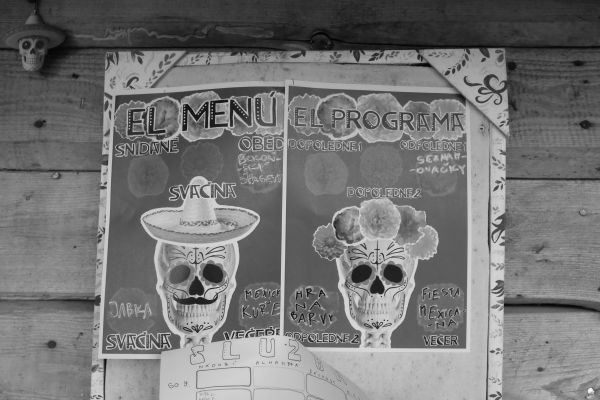 EL MENÚ
SNIDANE
OBED
SVAČINA
JABKA
MEXICK
KUŘE
SVAČINA
VEČEŘE
EL PROGRAMA
DOPOLEDNE 1
ODPOLEDNE 1
SEZNAM-
OVAČKY
DOPOLEDNE 2
HRA
NA
BARVY
FIESTA
MEXICA-
-NA
ODPOLEDNE 2
VECER
SLUŽ